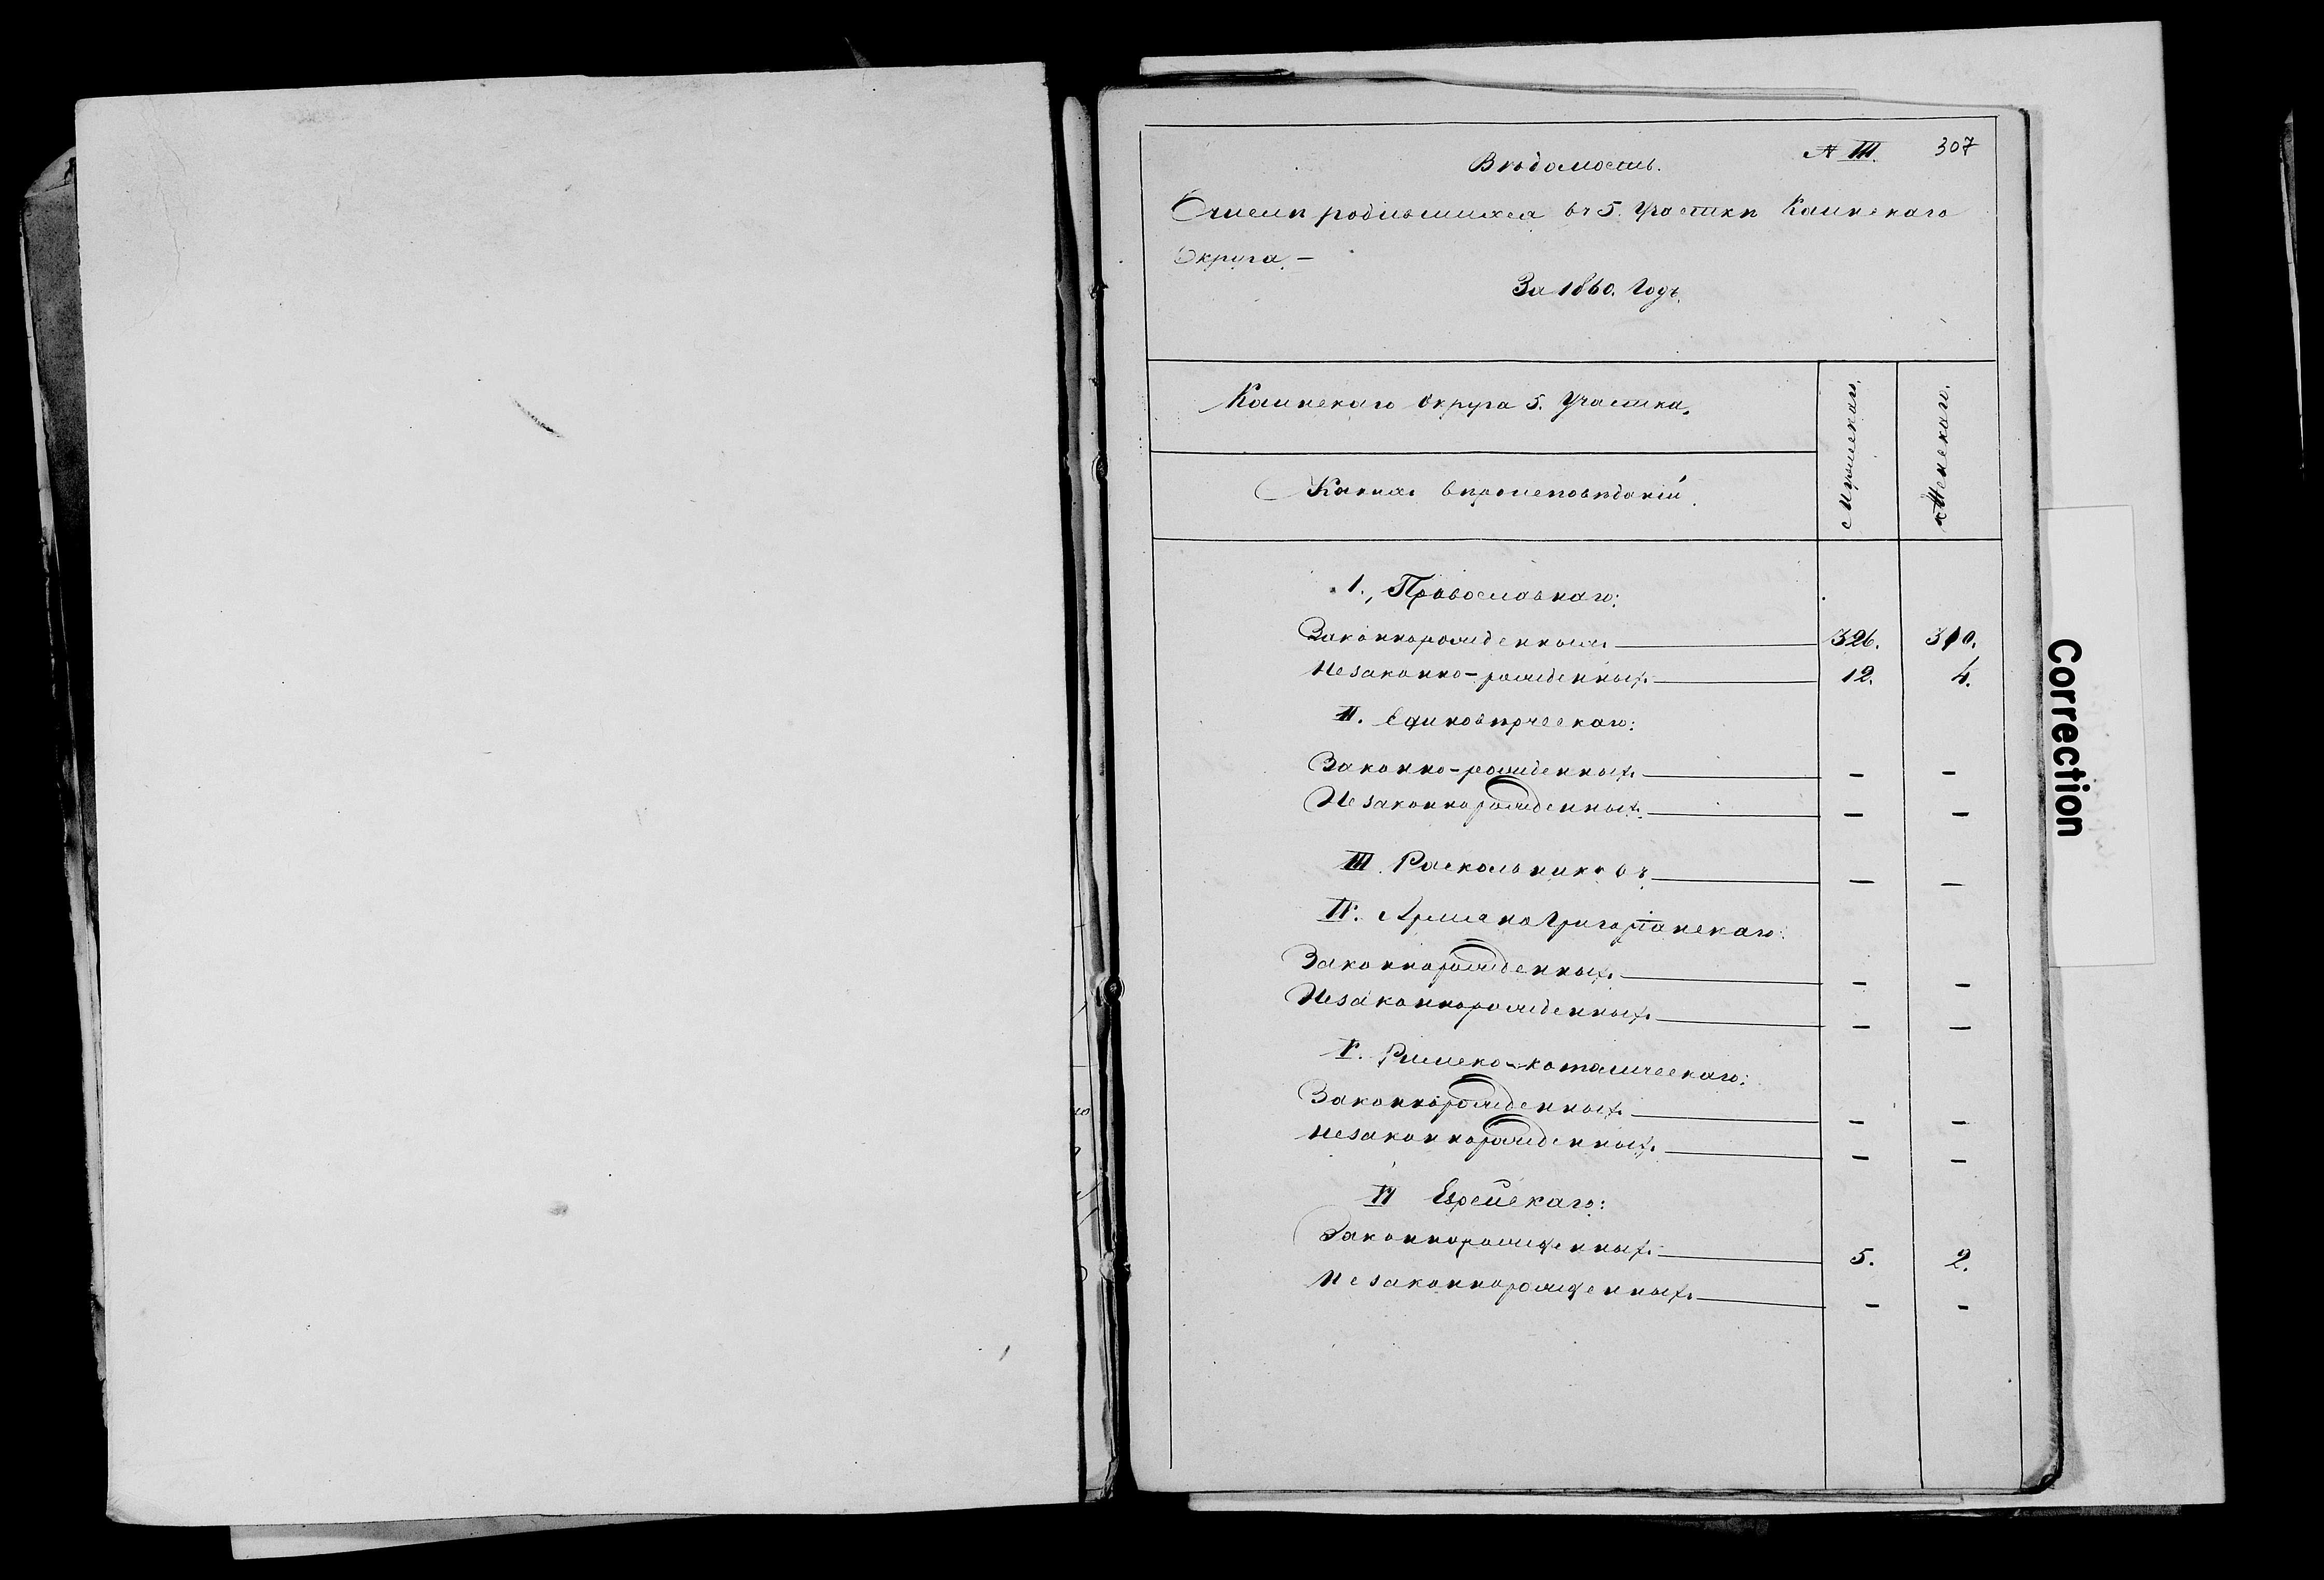 № III. 307
Вѣдомость.
О числѣ родившихся въ 5. Участкѣ Каинскаго
Округа. —
За 1860. Годъ.
Каинскаго Округа 5. Участка.
Мужескаго.
Женскаго.
Какихъ вѣроисповѣданій.
1., Православнаго:
Законнорожденныхъ 326. 310.
Незаконно-рожденныхъ 12. 4.
II. Единовѣрческаго:
Законно-рожденныхъ — —
Незаконнорожденныхъ — —
III. Раскольниковъ — —
IV. Армяно Григоріанскаго:
Законнорожденныхъ — —
Незаконнорожденныхъ — —
V. Римско-католическаго:
Законнорожденныхъ — —
Незаконнорожденныхъ — —
VI Еврейскаго:
Законнорожденныхъ 5. 2.
Незаконнорожденныхъ — —
Correction